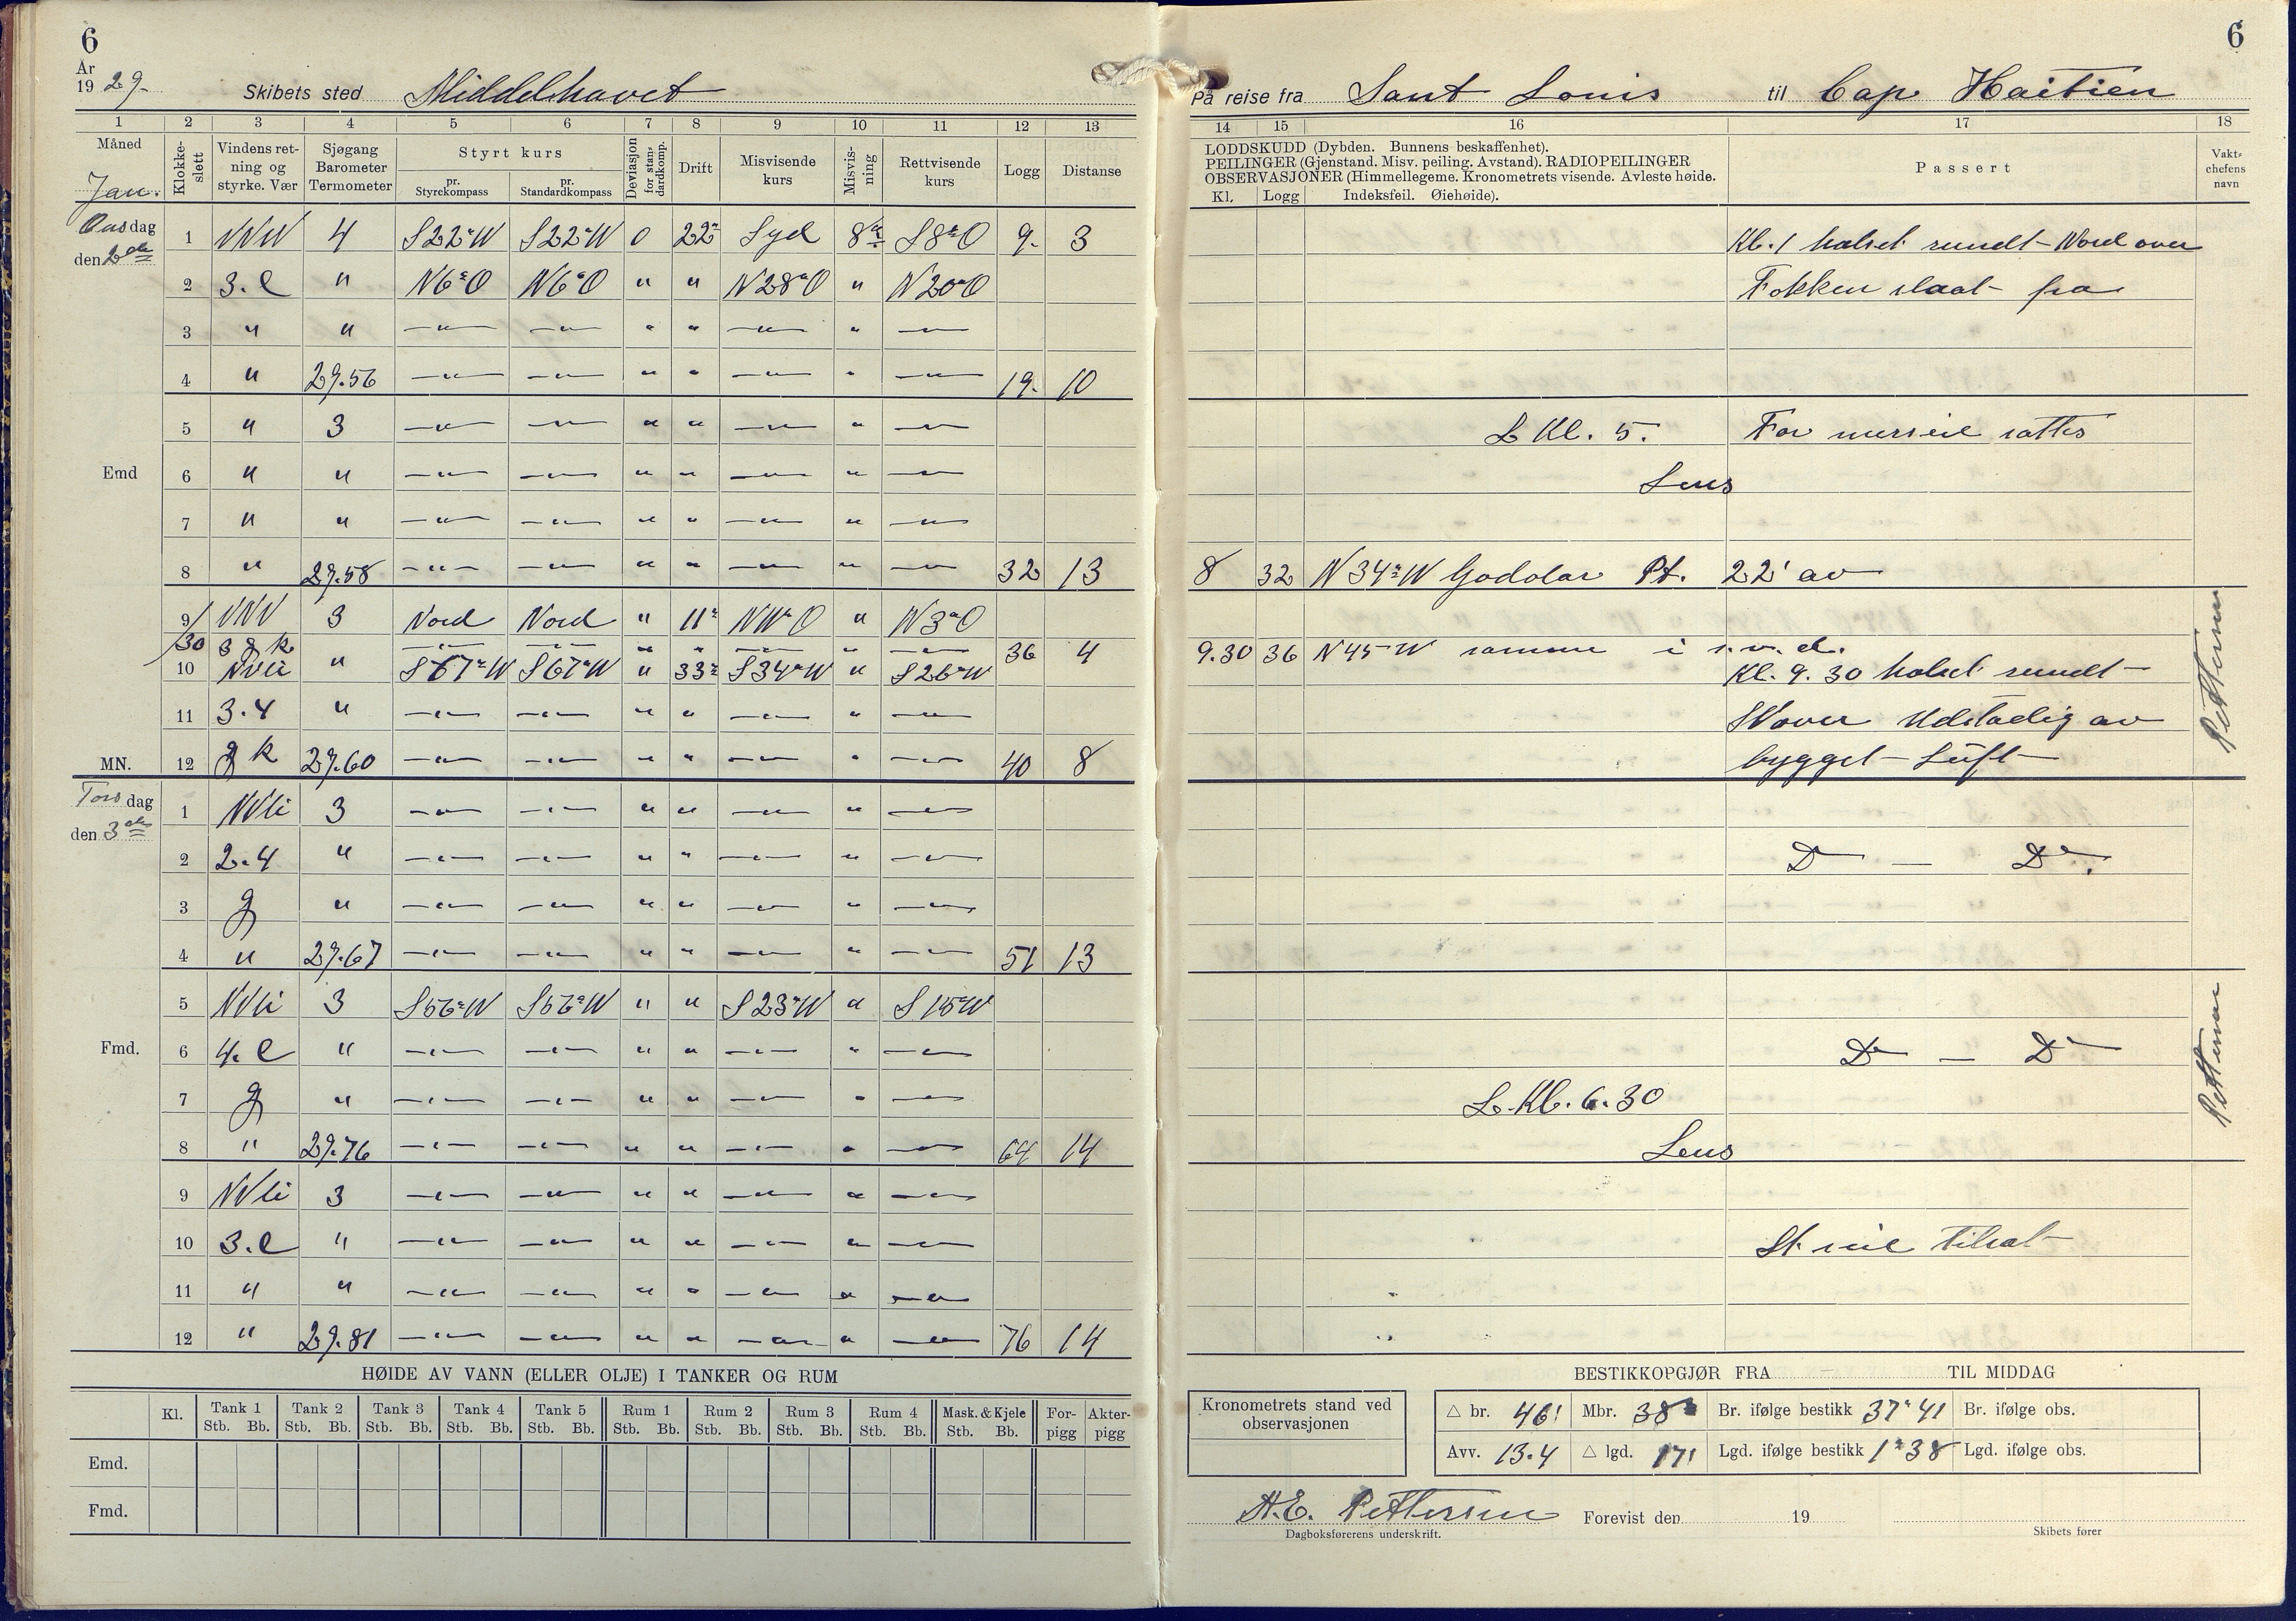 6
År
1929.
Skibets sted Middelhavet
1 2 3 4 5 6 7 8 9 10 11 12 13
Måned
Jan.
Klokkeslett
Vindens retning og styrke. Vær
Sjøgang Barometer Termometer
Styrt kurs
pr. Styrekompass
pr. Standardkompass
Deviasjon for standardkomp.
Drift
Misvisende kurs
Misvisning
Rettvisende kurs
Logg
Distanse
Onsdag
den 2de
1 VNV 4 S22°W S22°W 0 22° Syd 8° S8°O 9. 3
2 3. l " N6°O N6°O " " N28°O " N20°O
3 " " —"— —"— " " —"— " —"—
4 " 29.56 —"— —"— " " —"— " —"— 19. 10
5 " 3 —"— —"— " " —"— " —"—
Emd 6 " " —"— —"— " " —"— " —"—
7 " " —"— —"— " " —"— " —"—
8 " 29.58 —"— —"— " " —"— " —"— 32 13
9/ VNV 3 Nord Nord " 11° N11°O " N3°O
/30 3 g k —"— —"— " " —"— " —"— 36 4
10 NVli " S67°W S67°W " 33° S34°W " S26°W
11 3.4 " —"— —"— " " —"— " —"—
MN. 12 g k 29.60 —"— —"— " " —"— " —"— 40 8
Torsdag
den 3de
1 NVli 3 —"— —"— " " —"— " —"—
2 2.4 " —"— —"— " " —"— " —"—
3 g " —"— —"— " " —"— " —"—
4 " 29.67 —"— —"— " " —"— " —"— 51 13
5 NVli 3 S56°W S56°W " " S23°W " S15°W
Fmd. 6 4. l " —"— —"— " " —"— " —"—
7 g " —"— —"— " " —"— " —"—
8 " 29.76 —"— —"— " " —"— " —"— 64 14
9 NVli 3 —"— —"— " " —"— " —"—
10 3. l " —"— —"— " " —"— " —"—
11 " " —"— —"— " " —"— " —"—
12 " 29.81 —"— —"— " " —"— " —"— 76 14
HØIDE AV VANN (ELLER OLJE) I TANKER OG RUM
Kl. Tank 1 Tank 2 Tank 3 Tank 4 Tank 5 Rum 1 Rum 2 Rum 3 Rum 4 Mask. & Kjele For- Akter-
Stb. Bb. Stb. Bb. Stb. Bb. Stb. Bb. Stb. Bb. Stb. Bb. Stb. Bb. Stb. Bb. Stb. Bb. Stb. Bb. pigg pigg
Emd.
Fmd.
6
På reise fra Sant Louis til Cap Haitien
14 15 16 17 18
LODDSKUDD (Dybden. Bunnens beskaffenhet).
PEILINGER (Gjenstand. Misv. peiling. Avstand). RADIOPEILINGER
OBSERVASJONER (Himmellegeme. Kronometrets visende. Avleste høide.
Kl. Logg Indeksfeil. Øiehøide).
Passert
Vaktchefens navn
Kl. 1 halset rundt Nord over
Fokken slaat fra
L Kl. 5. For merseil sattes
Lens
8 32 N34°W Pt. 22' av
9.30 36 N45°W samme i s.v.d.
Kl. 9.30 halset rundt
SV over Ustadig av
bygget Luft
Pettersen
Do — Do.
Do — Do
L. Kl. 6.30
Lens
Pettersen
St seil tilsat
BESTIKKOPGJØR FRA TIL MIDDAG
Kronometrets stand ved observasjonen
△ br. 46' Mbr. 38° Br. ifølge bestikk 37°41 Br. ifølge obs.
Avv. 13.4 △ lgd. 17' Lgd. ifølge bestikk 1°38 Lgd. ifølge obs.
A.E. Pettersen Forevist den 19
Dagboksførerens underskrift. Skibets fører